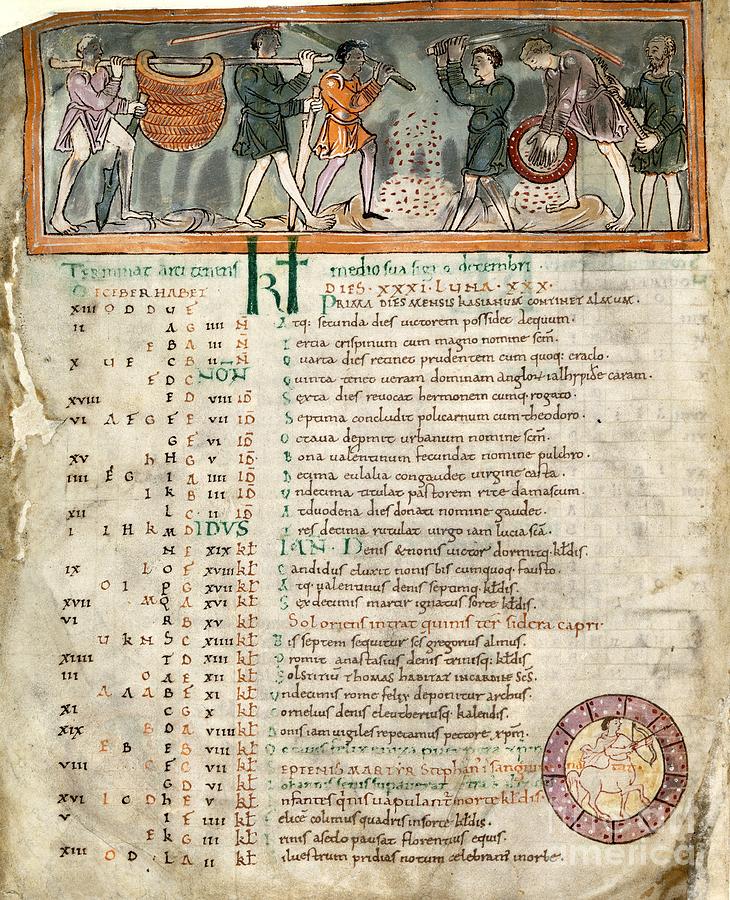 Terminat arcitenens medio sua sig̅a decembri.
DECEBER HABET DIES · XXXI · LUNA · XXX ·
PRIMA DIES MENSIS KASIANUM CONTINET ALMUM ·
XIII O D D U E
II A G IIII N̅ Atq: secunda dies victorem possidet aequum ·
E B A III N̅ Tertia crispinum cum magno nomine sc̅m ·
X U F C B II N̅ Quarta dies retinet prudentem cum quoq:
F D C NON Quinta tenet veram dominam caram ·
XVIII E D VIII ID̅ Sexta dies revocat hermonem cumq: rogato ·
VI A F G F E VII ID̅ Septima concludit policarnum cum theodoro ·
G F VI ID̅ Octava depmit urbanum nomine sc̅m ·
XV h H G V ID̅ Nona valentinum fecundat nomine pulchro ·
IIII E G I A IIII ID̅ Decima eulalia congaudet virgine casta ·
I K B III ID̅ Undecima titulat pastorem rite damascum ·
XII L C II ID̅ Atduodena dies donati nomine gaudet ·
I I H K M D IDUS Tres decima rutulat virgo iam lucia sc̅a ·
N E XIX kl̅ IAN · Denis & nonis victor dormitq: kl̅dis ·
IX L O F XVIII kl̅ Candidus eluxit nonis bis cumquoq: fausto ·
O I P G XVII kl̅ Atq: valentinus denis septimq: kl̅dis ·
XVII M Q A XVI kl̅ Sex decimis martir ignatus sorte kl̅dis ·
VI R B XV kl̅ Sol oriens intrat quinis ter sidera capri ·
U K N S C XIIII kl̅ Bis septem sequitur sc̅s gregorius almus ·
XIIII T D XIII kl̅ Promit anastasius denis trinisq: kl̅dis
III O A E XII kl̅ SOLSTITIU̅ THOMAS HABITAT INCARDINE SC̅S ·
A A A B F XI kl̅ Undecimis rome felix deponitur archus ·
XI C G X kl̅ Cornelius denis eleutheriusq: kalendis ·
XIX B D A VIIII kl̅ Nonis iam vigiles repetamus pectore xp̅m ·
F B E B VIII kl̅ Octavis
VIII C F C VII kl̅ SEPTENIS MARTYR Stephani
G D VI kl̅ Iohannis
XVI I O D h E V kl̅ Infantes q̅nis vapulant morte kl̅dis ·
V I F IIII kl̅ colimus quadris insorte kl̅dis ·
F K G III kl̅ Trinis pausat florentius equis ·
XIII O D L A II kl̅ Siluestrum pridias notum celebrant morte ·
america